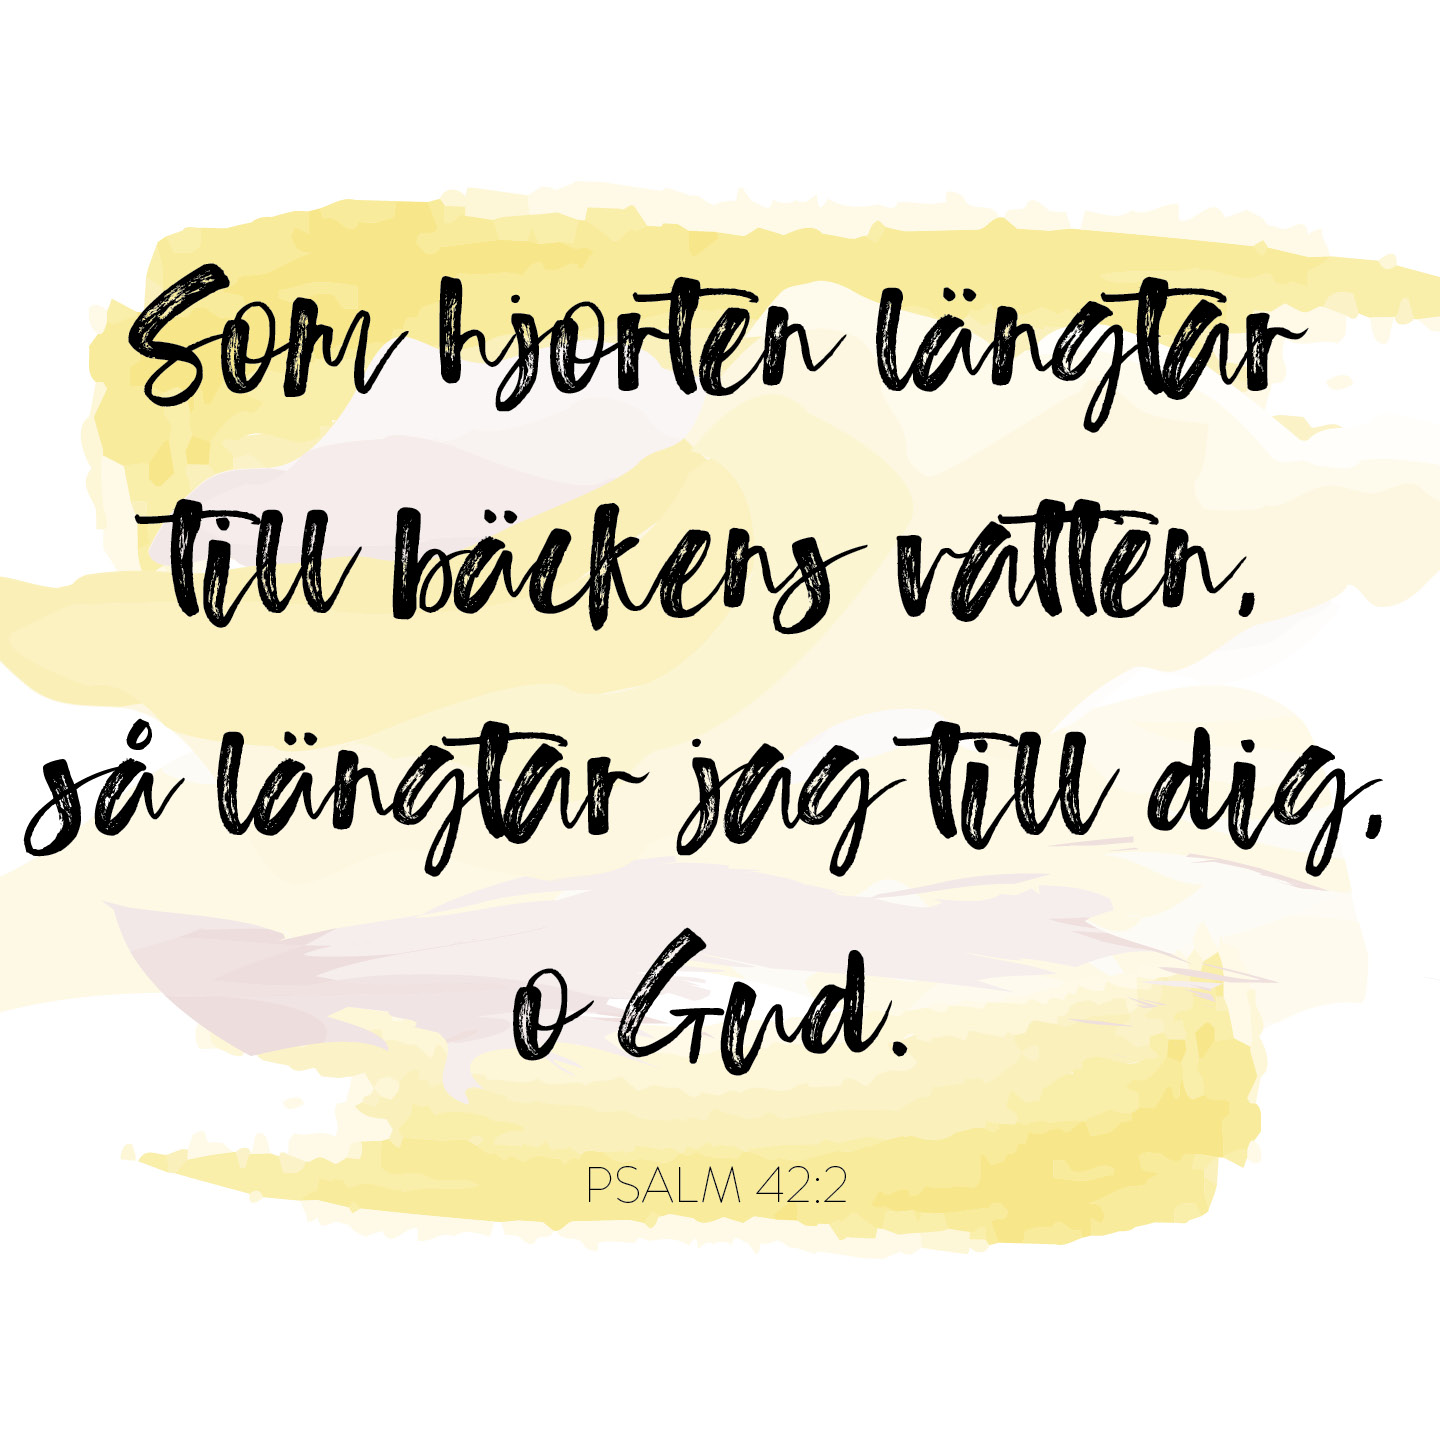 Som hjorten längtar
till bäckens vatten,
så längtar jag till dig,
o Gud.
PSALM 42:2